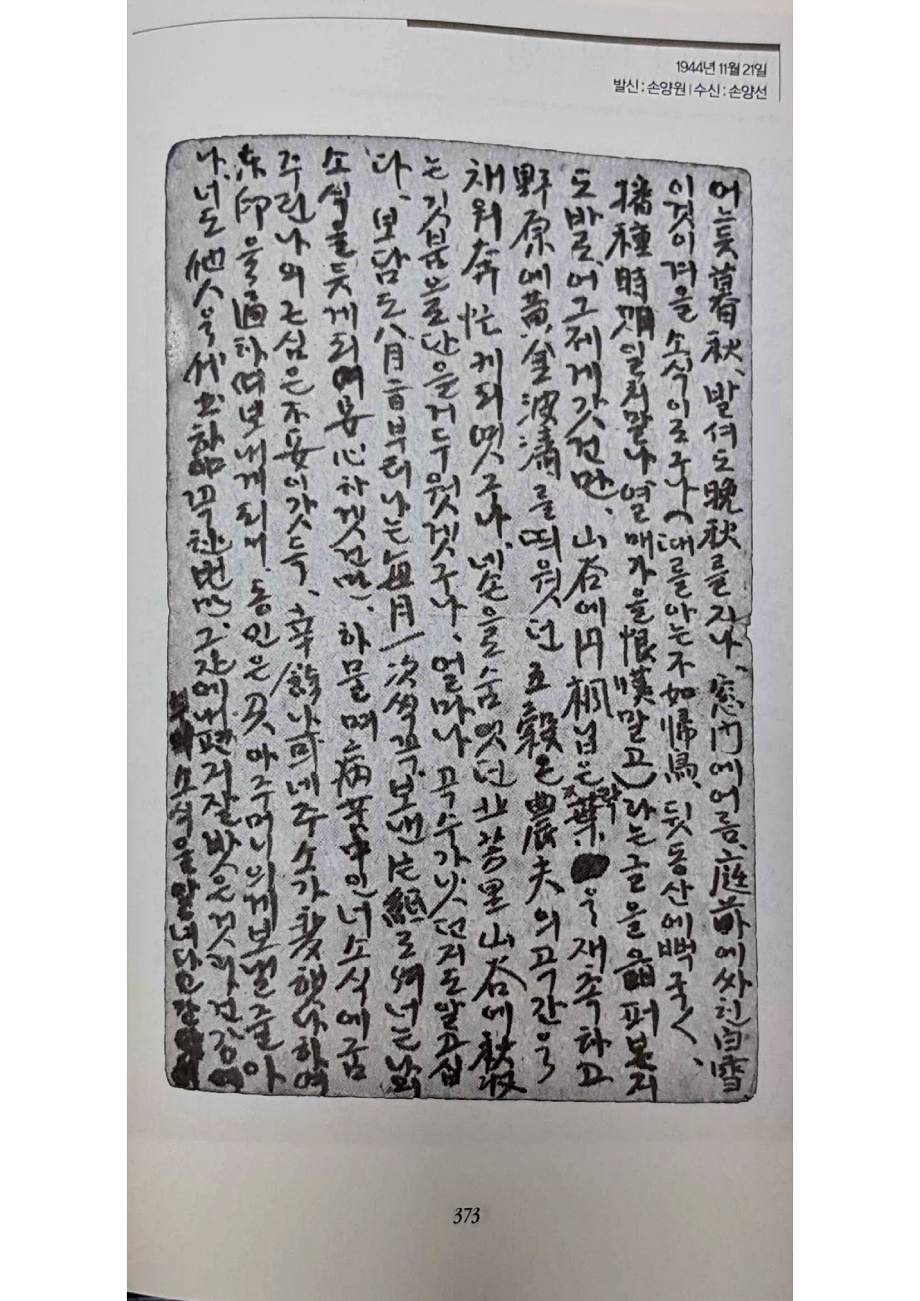 1944년 11월 21일
발신 : 손양원 | 수신 : 손양선
어느듯 暮秋, 발셔도 晩秋를 지나, 窓門에 어름, 庭前에 싸힌 白雪
이것이 겨을 소식이로구나 (때를 아는 不如帰鳥, 뒷동산에 뻑국〱,
播種時期 일치말나, 열매 가을 恨嘆 말고) 라는 글을 읇퍼본지
도 바로 어그제 게갓건만, 山谷에 丹楓닙은 落葉을 재촉하고
野原에 黃金波濤를 띄웟던 五穀은 農夫의 곡간을
채워 奔忙케 되엿구나, 네 손으로 숨엇던 山谷에 秋收
는 깃붐으로 단을 거두윗겟구나, 얼마나 곡수가 낫던지도 알고십
다, 보담도 八月붐부터 나는 每月 一次식 꼭 보낸 片紙로써 너는 나의
소식을 듯게 되며 安心하겟건만, 하물며 病苦中인 너 소식에 굼
주린 나의 근심은 不安이 갓득, 幸餘나 네 주소가 変햇나 하여
印을 하며 보내게 되서, 동인은 곳 아주머니의게 보낼 줄 아
나, 너도 他人을 식혀 꼭 한번만, 그 간에 내 편지 잘 밧은 것과 건강에
소식을 알녀다고
373